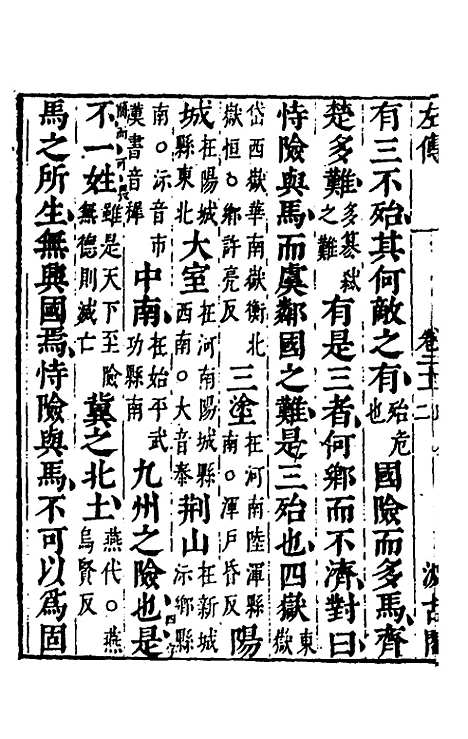 左傳 卷二十 二 汲古閣
有三不殆其何敵之有殆危也國險而多馬齊
楚多難多篡弒之難有是三者何鄉而不濟對曰
恃險與馬而虞鄰國之難是三殆也四嶽東嶽
岱西嶽華南嶽衡北嶽恒○鄉許亮反三塗在河南陸渾縣南○渾戶昏反陽
城在陽城縣東北大室在河南陽城縣西南○大音泰荊山在新城沶鄉縣
南○沶音市漢書音稺中南在始平武功縣南九州之險也是
不一姓雖是天下至險無德則滅亡冀之北土燕代○燕烏賢反
馬之所生無興國焉恃險與馬不可以爲固